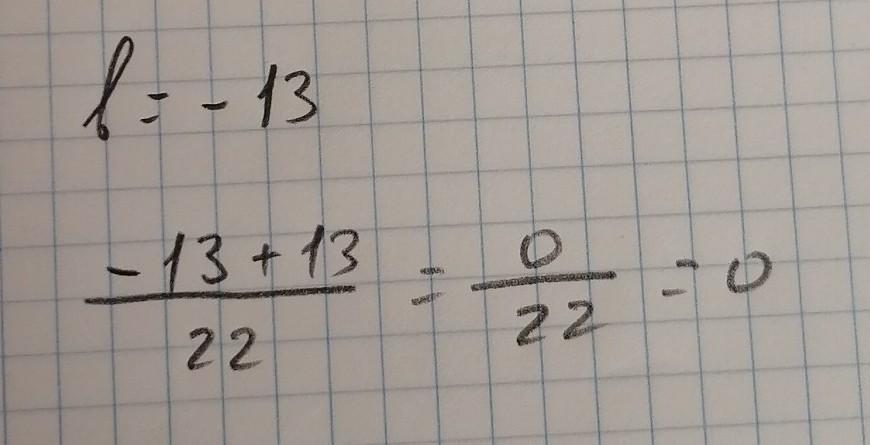 b = - 13
\frac{-13 + 13}{22} = \frac{0}{22} = 0